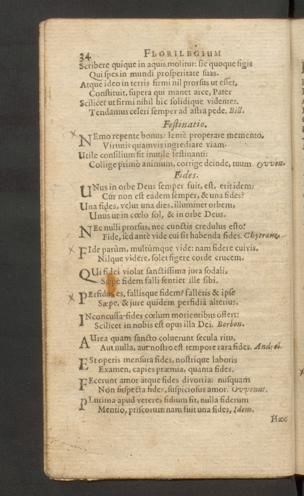 34 FLORILEGIUM
Scribere quique in aquis molitur: sic quoque figit
Qui spes in mundi prosperitate suas.
Atque ideo in terris firmi nil prorsus ut esset,
Constituit, supera qui manet arce, Pater
Scilicet ut firmi nihil hic solidique videntes,
Tendamus celeri semper ad astra pede. Bill.
Festinatio.
NEmo repente bonus: lentè properare memento,
Virtutis quamvis ingrediare viam.
Utile consilium fit inutile festinanti:
Collige primò animum, corrige deinde, tuum
Fides.
UNus in orbe Deus semper fuit, est, erit idem:
Cur non est eadem semper, & una fides?
Una fides, velut una dies, illuminet orbem,
Unus ut in cœlo sol, & in orbe Deus.
NEc nulli prorsus, nec cunctis credulus esto!
Fide, sed antè vide cui sit habenda fides.
FIde parùm, multúmque vide: nam fidere cuivis,
Nilque videre, solet figere corde crucem.
QUi fidei violat sanctissima jura sodali,
Sæpe fidem falli sentiet ille sibi.
PErfidus es, fallisque fidem? falleris & ipse
Sæpe, & jure quidem perfidiâ alterius.
INconcussa fides cœlum morientibus offert:
Scilicet in nobis est opus illa Dei. Borbon.
AUrea quam sancto coluerunt secula ritu,
Aut nulla, aut nostro est tempore rara fides.
ESt operis mensura fides, nostrique laboris
Examen, capies præmia, quanta fides.
FEcerunt amor atque fides divortia: nusquam
Non suspecta fides, suspiciosus amor.
PLurima apud veteres fidium fit, nulla fiderum
Mentio, priscorum nam fuit una fides, Idem.
Hæc